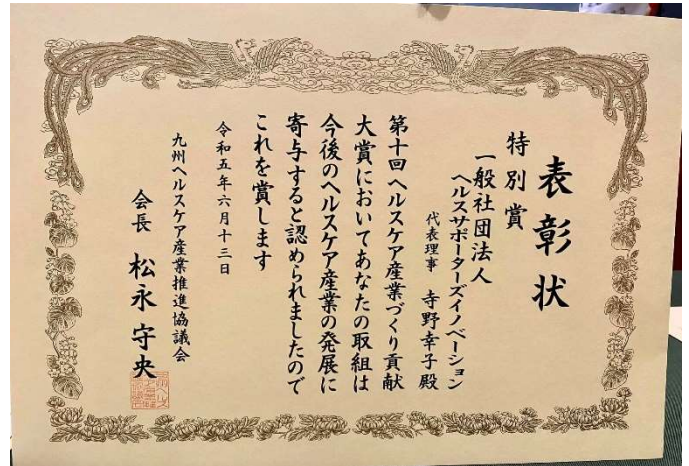 表彰状
特別賞
一般社団法人
ヘルスサポーターズイノベーション
代表理事 寺野幸子殿
第十回ヘルスケア産業づくり貢献
大賞においてあなたの取組は
今後のヘルスケア産業の発展に
寄与すると認められましたので
これを賞します
令和五年六月十三日
九州ヘルスケア産業推進協議会
会長 松永守央